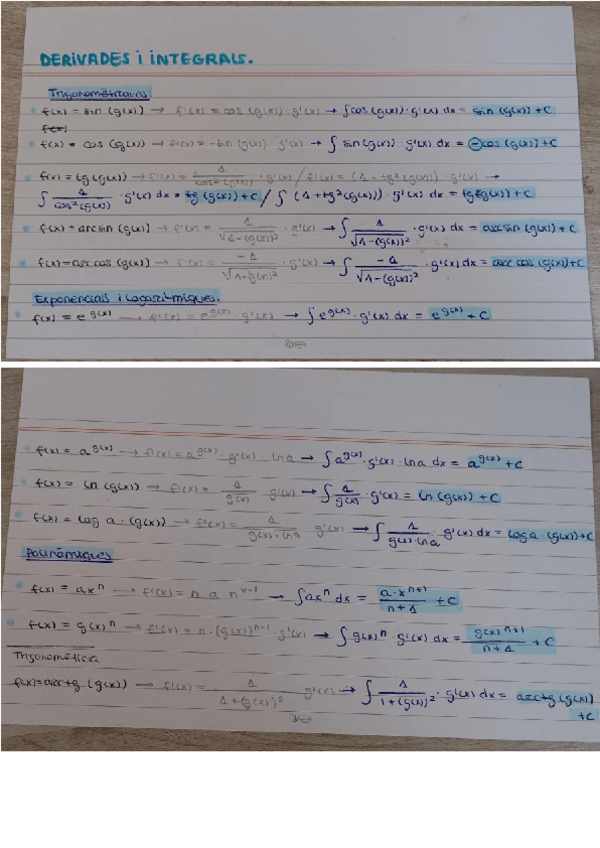 DERIVADES i INTEGRALS.
Trigonomètriques.
f(x) = sin (g(x)) → f'(x) = cos (g(x)) · g'(x) → ∫cos (g(x)) · g'(x) dx = sin (g(x)) + C
f(x)
f(x) = cos (g(x)) → f'(x) = -sin (g(x)) · g'(x) → ∫ sin(g(x)) · g'(x) dx = -cos (g(x)) + C
f(x) = tg (g(x)) → f'(x) = 1/cos²(g(x)) · g'(x) / f'(x) = (1 + tg²(g(x))) · g'(x) →
∫ 1/cos²(g(x)) · g'(x) dx = tg (g(x)) + C / ∫ (1 + tg²(g(x))) · g'(x) dx = tg(g(x)) + C
f(x) = arcsin (g(x)) → f'(x) = 1/√1-(g(x))² · g'(x) → ∫ 1/√1-(g(x))² · g'(x) dx = arcsin (g(x)) + C
f(x) = arccos (g(x)) → f'(x) = -1/√1-(g(x))² · g'(x) → ∫ -1/√1-(g(x))² · g'(x) dx = arc cos (g(x)) + C
Exponencials i Logarítmiques.
f(x) = e^g(x) → f'(x) = e^g(x) · g'(x) → ∫ e^g(x) · g'(x) dx = e^g(x) + C
f(x) = a^g(x) → f'(x) = a^g(x) · g'(x) · ln a → ∫ a^g(x) · g'(x) · ln a dx = a^g(x) + C
f(x) = ln (g(x)) → f'(x) = 1/g(x) · g'(x) → ∫ 1/g(x) · g'(x) = ln (g(x)) + C
f(x) = log a · (g(x)) → f'(x) = 1/g(x) · ln a · g'(x) → ∫ 1/g(x) · ln a · g'(x) dx = log a · (g(x)) + C
Polinòmiques
f(x) = ax^n → f'(x) = n · a · → ∫ ax^n dx = a·x^n+1/n+1 + C
f(x) = g(x)^n → f'(x) = n · (g(x))^n-1 · g'(x) → ∫ g(x)^n · g'(x) dx = g(x)^n+1/n+1 + C
Trigonomètrica
f(x) = arctg (g(x)) → f'(x) = 1/1+(g(x))² · g'(x) → ∫ 1/1+(g(x))² · g'(x) dx = arctg (g(x))
+ C